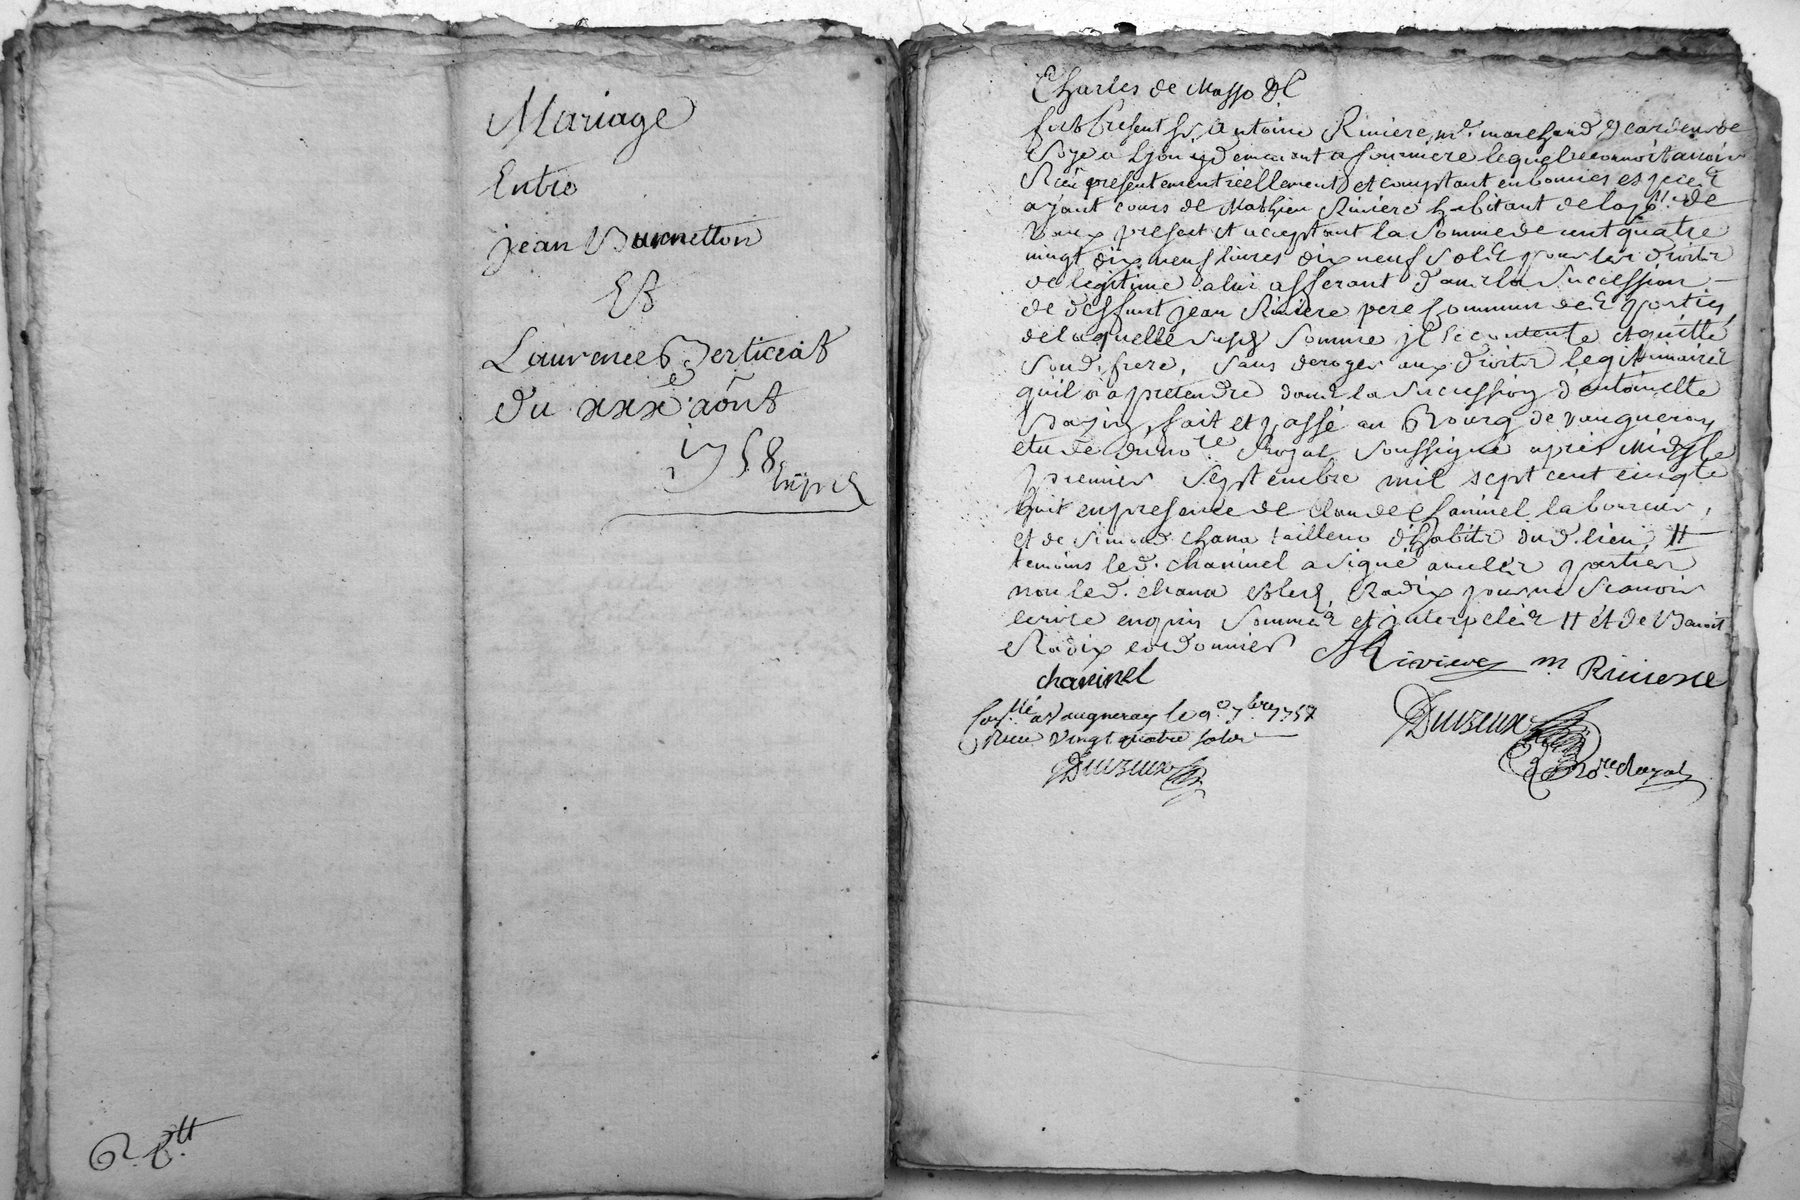 Mariage
Entre
jean Burnetton
Et
Laurence Berticat
Du xxxe août
1758
Charles de Masso &c
fut present sr. antoine Riviere, md. marchand
Soye a Lyon y demeurant lequel reconnoit avoir
Receu presentement reellement et comptant en bonnes especes
ayant cours de Mathieu Riviere habitant de la
Vaux present et acceptant la somme de cent quatre
vingt dix neuf livres dix neuf sols pour les droits
de legitime a lui afferant dans la Succession
de deffunt jean Riviere pere commun des parties
de laquelle susd. somme il se contente et quitte
Sond. frere, sans deroger aux droits legitimaires
quil a a pretendre dans la succession d'antoinette
fait et passé au Bourg de vaugneray
etude du nore. Royal soussigné apres Midy le
premier septembre mil sept cent cinqte
huit en presence de Claude Chaninel laboureur,
et de Simond chana tailleur d'habits dud. lieu #
temoins led. chaninel a signé avec les parties
non led. chana et led. Radix pour ne scavoir
ecrire enquis sommés et interpelés # et de Benoit
Radix cordonnier
A Riviere m Riviere
chaninel
a Vaugneray le 9e 7bre 1758
Receu vingt quatre sols
Duvieux
Duvieux
Nore. Royal